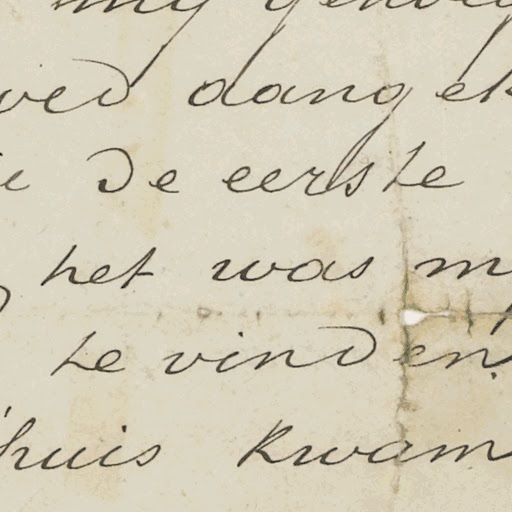 my
aangek
de eerste
het was m
te vinden
huis kwam